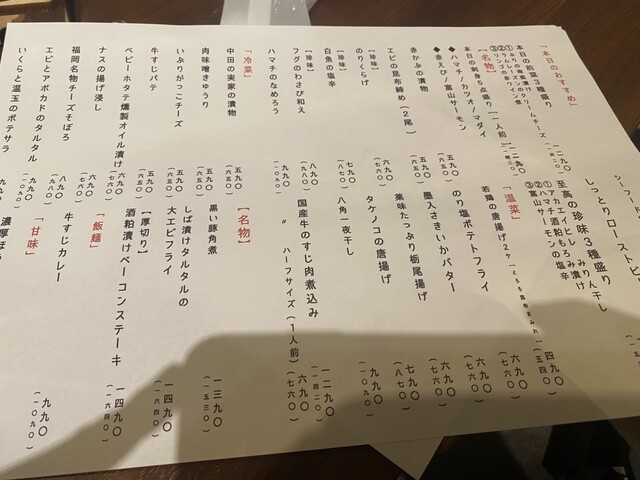 「本日のおすすめ」
本日の前菜３種盛り
一二九〇
【名物】
本日の刺身５点盛り(一人前)
一二九〇
◆ハマチ／カツオ／マダイ
◆赤えび／富山サーモン
赤かぶの漬物
五九〇
(六五〇)
エビの昆布締め(２尾)
六九〇
(七六〇)
【珍味】
のりくらげ
七九〇
(八七〇)
【珍味】
白魚の塩辛
【珍味】
フグのわさび和え
八九〇
ハマチのなめろう
九九〇
(一〇九〇)
「冷菜」
中田の実家の漬物
五九〇
(六五〇)
肉味噌きゅうり
五九〇
(六五〇)
いぶりがっこチーズ
五九〇
(六五〇)
牛すじパテ
五九〇
(六五〇)
ベビーホタテ燻製オイル漬け
六九〇
(七六〇)
ナスの揚げ浸し
六九〇
(七六〇)
福岡名物チーズそぼろ
八九〇
エビとアボカドのタルタル
九九〇
(一〇九〇)
いくらと温玉のポテサラ
しっとりロースト
至高の珍味３種盛り
①アカエイヒレみりん干し
②ハマチ酒粕もろみ漬け
③富山サーモンの塩辛
四九〇
(五四〇)
「温菜」
若鶏の唐揚げ２ケ
のり塩ポテトフライ
六九〇
(七六〇)
墨入さきいかバター
六九〇
(七六〇)
薬味たっぷり栃尾揚げ
七九〇
(八七〇)
タケノコの唐揚げ
九九〇
(一〇九〇)
八角一夜干し
国産牛のすじ肉煮込み
一二九〇
(一四二〇)
〃 ハーフサイズ(１人前)
六九〇
(七六〇)
【名物】
黒い豚角煮
一三九〇
(一五三〇)
しば漬けタルタルの
大エビフライ
一四九〇
(一六四〇)
【厚切り】
酒粕漬けベーコンステーキ
一四九〇
(一六四〇)
「飯麺」
牛すじカレー
九九〇
(一〇九〇)
「甘味」